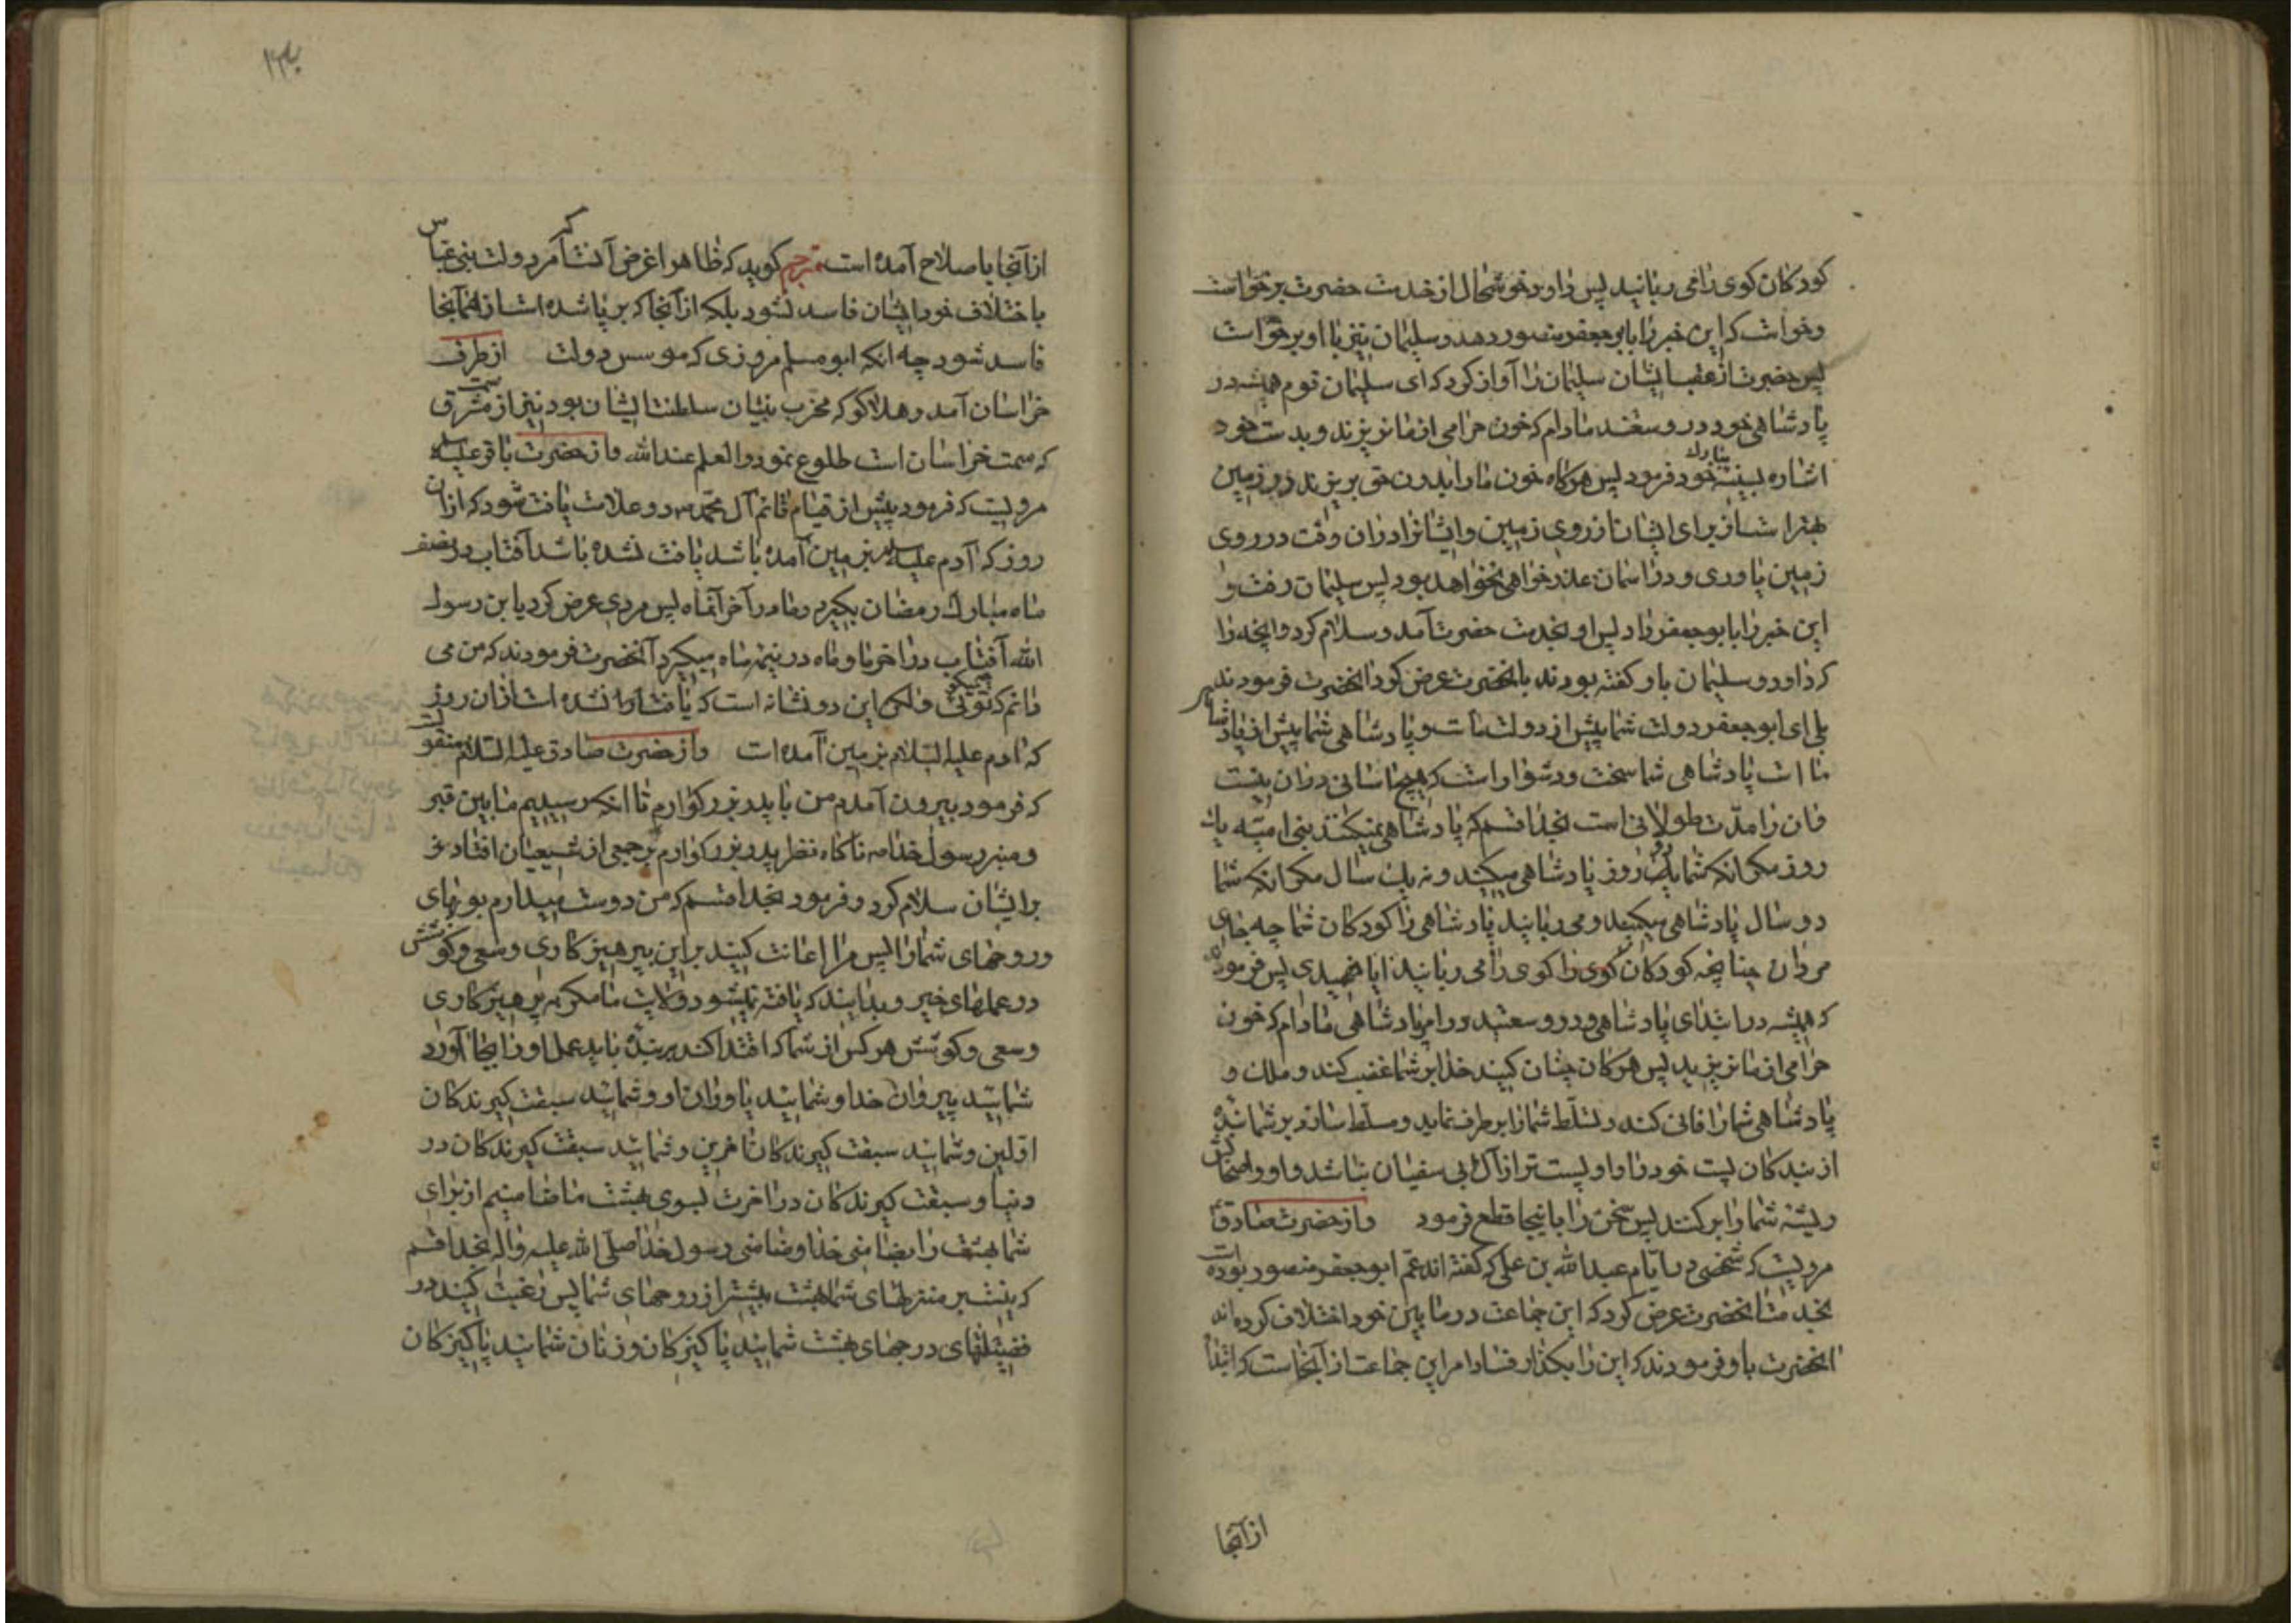 کودکان کوی را می ربانید پس داود خوشحال از خدمت حضرت برخواست
وخواست که این خبر را بابو جعفر منصور دهد و سلیمان نیز با او برخواست
پس حضرت از عقب ایشان سلیمان را آواز کرد که ای سلیمان قوم همیشه در
پادشاهی خود در وسعتند مادام که خون حرامی از ما نریزند و بدست خود
اشاره بسینه مبارک خود فرمود پس هرکاه خون ما را بدون حق بریزند زیر زمین
بهتر است از برای ایشان از روی زمین و ایشانرا در ان وقت در روی
زمین یاوری و در اسمان عذرخواهی نخواهد بود پس سلیمان رفت و
این خبر را بابو جعفر داد پس او بخدمت حضرت آمد و سلام کرد و انچه را
که داود و سلیمان باو کفته بودند بانحضرت عرض کرد انحضرت فرمودند
بلی ای ابو جعفر دولت شما پیش از دولت ماست و پادشاهی شما پیش از پادشاهی
ما است پادشاهی شما سخت و دشوار است که هیچ اسانی در ان نیست
و ان را مدّت طولانی است بخدا قسم که پادشاهی نمیکنند بنی امیّه یک
روز مکر انکه شما دو روز پادشاهی میکنید و نه یک سال مکر انکه شما
دو سال پادشاهی میکنید و می ربانید پادشاهی را کودکان شما چه جای
مردان چنانچه کودکان کوی را می ربانند ایا فهمیدی پس فرمود
که همیشه در ابتدای پادشاهی و در وسعتید در امر پادشاهی مادام که خون
حرامی از ما نریزید پس هرکاه چنان کنید خدا بر شما غضب کند و ملک و
پادشاهی شما را فانی کند و تسلّط شما را برطرف نماید و مسلّط سازد بر شما بنده
از بندکان پست خود را و او پست تر از آل ابی سفیان باشد و او و اصحابش
ریشه شما را بر کنند پس سخن را باینجا قطع فرمود و از حضرت صادق
مرویست که شخصی در ایام عبد الله بن علی که کفته اند عم ابو جعفر منصور بوده است
بخدمت انحضرت عرض کرد که این جماعت در ما بین خود اختلاف کرده اند
انحضرت باو فرمودند که این را بکذار فساد امر این جماعت از آنجاست که ابتدا
از آنجا
از آنجا باصلاح آمده است مترجم کوید که ظاهرا غرض آنست که امر دولت بنی عباس
باختلاف خود ایشان فاسد نشود بلکه از آنجا که بر پا شده است از همانجا
فاسد شود چه انکه ابو مسلم مروزی که موسس دولت از طرف
خراسان آمد و هلاکو که مخرب بنیان سلطنت ایشان بود نیز از سمت مشرق
که سمت خراسان است طلوع نمود و العلم عند الله و از حضرت باقر علیه السلام
مرویست که فرمود پیش از قیام قائم آل محمد ص دو علامت یافت شود که از ان
روز که آدم علیه السلام بزمین آمده باشد یافت نشده باشد آفتاب در نصف
ماه مبارک رمضان بکیرد و ماه در آخر آنماه پس مردی عرض کرد یا بن رسول
الله آفتاب در اخر ماه و ماه در نیمه ماه میکیرد آنحضرت فرمودند که من می
دانم که تو چه میکوئی و لکن این دو نشانه است که یافت نشده است از ان روز
که ادم علیه السّلام بزمین آمده است و از حضرت صادق علیه السّلام منقولست
که فرمود بیرون آمدم من با پدر بزرکوارم تا انکه رسیدیم مابین قبر
و منبر رسول خدا ص ناکاه نظر پدر بزرکوارم بر جمعی از شیعیان افتاد
بر ایشان سلام کرد و فرمود بخدا قسم که من دوست میدارم بویهای
و روحهای شما را پس مرا اعانت کنید بر این پرهیزکاری و سعی و کوشش
در عملهای خیر و بدانید که یافت نمیشود ولایت ما مکر به پرهیزکاری
و سعی و کوشش هر کس از شما که اقتدا کند ببنده باید عمل او را بجا آورد
شمائید پیروان خدا و شمائید یاوران او و شمائید سبقت کیرندکان
اوّلین و شمائید سبقت کیرندکان اخرین و شمائید سبقت کیرندکان در
دنیا و سبقت کیرندکان در اخرت بسوی بهشت ما ضامنیم از برای
شما بهشت را بضامنی خدا و ضامنی رسول خدا صلّی الله علیه و اله بخدا قسم
که نیست بر منزلهای بهشت بیشتر از روحهای شما پس رغبت کنید در
فضیلتهای درجهای بهشت شمائید پاکیزکان و زنان شمائید پاکیزکان